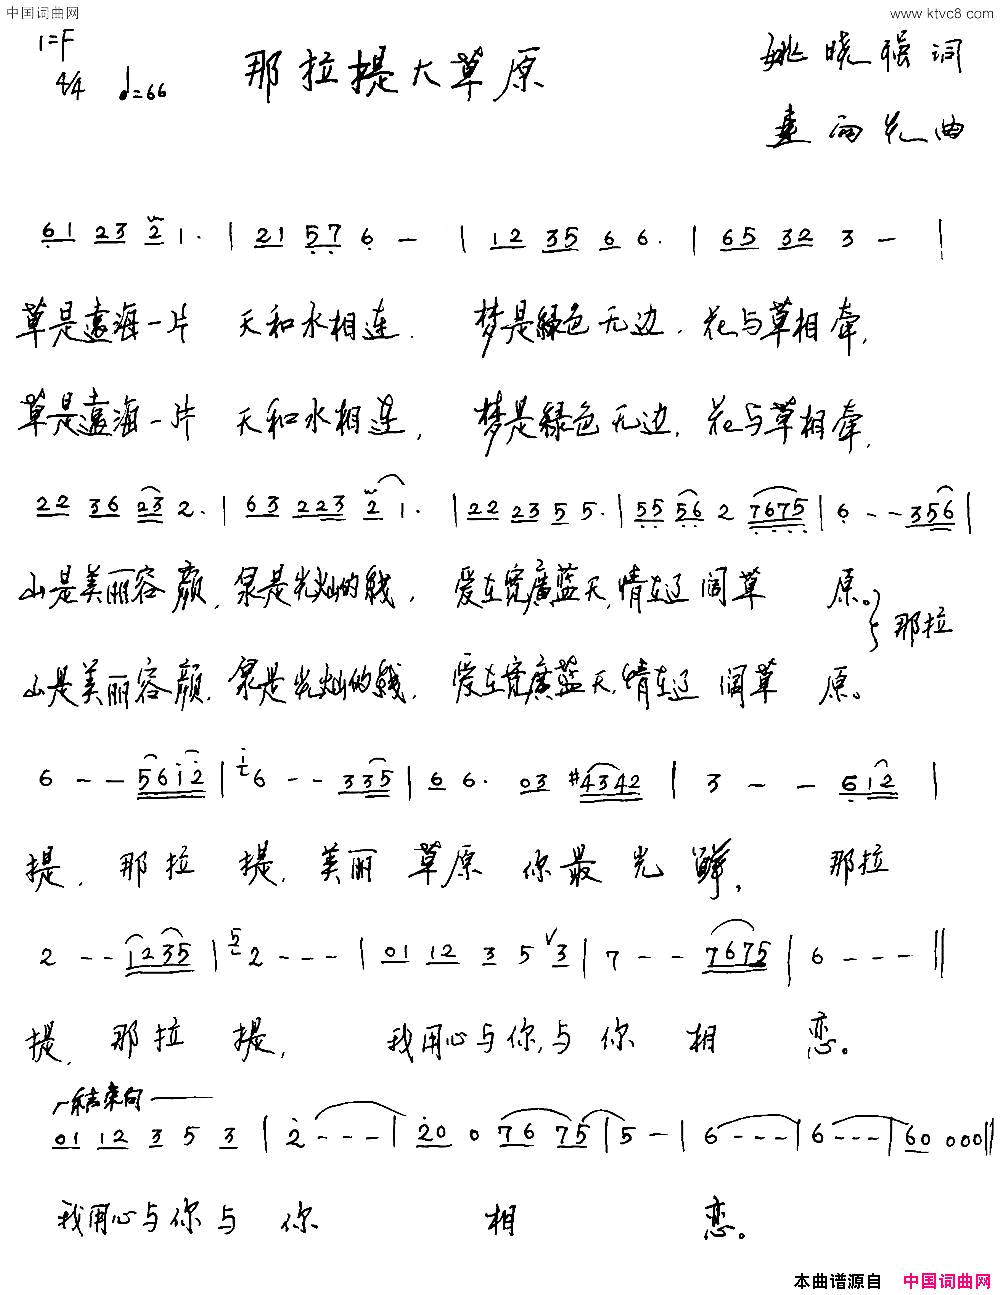 中国词曲网 www.ktvc8.com
1=F
4/4 ♩=66
那拉提大草原
姚晓强词
雨光曲
61 23 2 1. | 21 57 6 - | 12 35 6 6. | 65 32 3 - |
草是遠海一片 天和水相连. 梦是綠色无边. 花与草相牵,
草是遠海一片 天和水相连, 梦是綠色无边. 花与草相牵,
22 36 23 2. | 63 223 2 1. | 22 23 5 5. | 55 56 2 7675 | 6 - - 356 |
山是美丽容颜, 泉是光灿的线. 爱在宽廣蓝天,情在辽阔草原。 那拉
山是美丽容颜. 泉是光灿的线. 爱在宽廣蓝天,情在辽阔草原。
6 - - 5612 | i6 - - 335 | 6 6. 03 #4342 | 3 - - 612 |
提, 那拉提, 美丽草原你最光鲜, 那拉
2 - - 1235 | 52 - - - | 01 12 3 5 ∨3 | 7 - - 7675 | 6 - - - ‖
提, 那拉提, 我用心与你,与你相恋。
结束句
01 12 3 5 3 | 2 - - - | 20 0 76 75 | 5 - | 6 - - - | 6 - - - | 60 000 ‖
我用心与你与你相恋。
本曲谱源自 中国词曲网